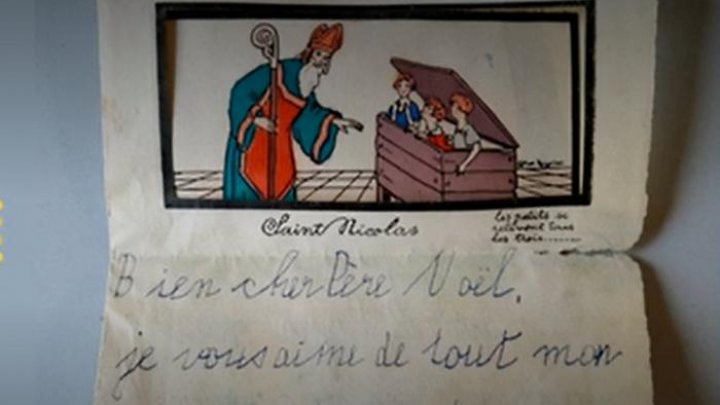 Saint Nicolas
les petits se
relèvent tous
les trois.......
Bien cher Père Noël,
je vous aime de tout mon